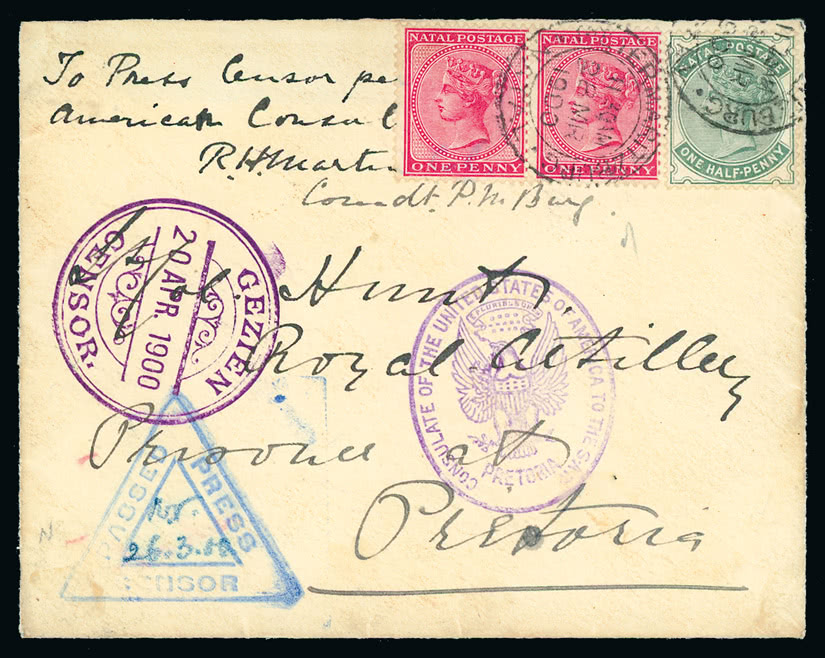 NATAL POSTAGE
ONE PENNY
NATAL POSTAGE
ONE PENNY
NATAL POSTAGE
ONE HALF-PENNY
BURG.
To Press Censor pe
American Consul
R.H. Martin
Comdt. P.M. Burg.
GEZIEN
20 APR. 1900
CENSOR.
Col. Hunt,
Royal Artillery
Prisoner at
Pretoria
CONSULATE OF THE UNITED STATES OF AMERICA TO THE S.A.R.
PRETORIA
PASSED PRESS CENSOR
26.3.00